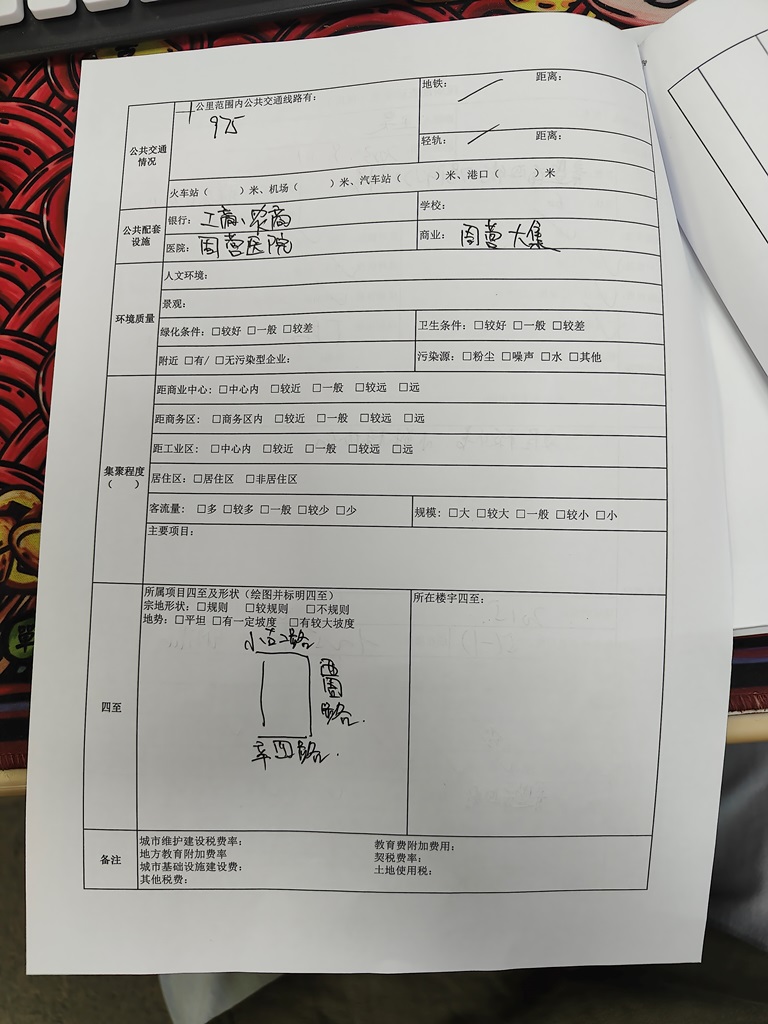 公共交通情况
一公里范围内公共交通线路有：
975
地铁： 距离：
轻轨： 距离：
火车站（ ）米、机场（ ）米、汽车站（ ）米、港口（ ）米
公共配套设施
银行：工商、农商
学校：
医院：周营医院
商业：周营大集
环境质量
人文环境：
景观：
绿化条件：□较好 □一般 □较差
卫生条件：□较好 □一般 □较差
附近 □有/ □无污染型企业：
污染源：□粉尘 □噪声 □水 □其他
集聚程度（ ）
距商业中心：□中心内 □较近 □一般 □较远 □远
距商务区：□商务区内 □较近 □一般 □较远 □远
距工业区：□中心内 □较近 □一般 □较远 □远
居住区：□居住区 □非居住区
客流量：□多 □较多 □一般 □较少 □少
规模：□大 □较大 □一般 □较小 □小
主要项目：
四至
所属项目四至及形状（绘图并标明四至）
宗地形状：□规则 □较规则 □不规则
地势：□平坦 □有一定坡度 □有较大坡度
所在楼宇四至：
路
路.
路.
备注
城市维护建设税费率；
教育费附加费用：
地方教育附加费率
契税费率；
城市基础设施建设费：
土地使用税：
其他税费：